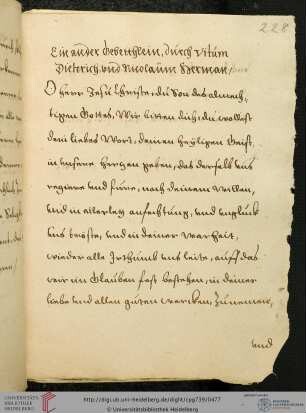 228
Ein ander Gebettlein, durch Vitum
Dieterich, und Nicolaum Herman
O Herr Jesu Christe, du Son des almech,
tigen Gottes, Wir bitten dich, du wollest
dein liebes Wort, deinen heyligen Geist,
in unsere Hertzen geben, das derselb uns
regiere und füre, nach deinem willen,
und in allerley anfechtung, und unglück
uns tröste, und in deiner warheit,
wieder alle Irthumb uns leite, auff das
wir im Glauben fest bestehen, in deiner
liebe und allen guten wercken, zunemen,
und
UNIVERSITÄTS
BIBLIOTHEK
HEIDELBERG
http://digi.ub.uni-heidelberg.de/diglit/cpg739/0477
© Universitätsbibliothek Heidelberg